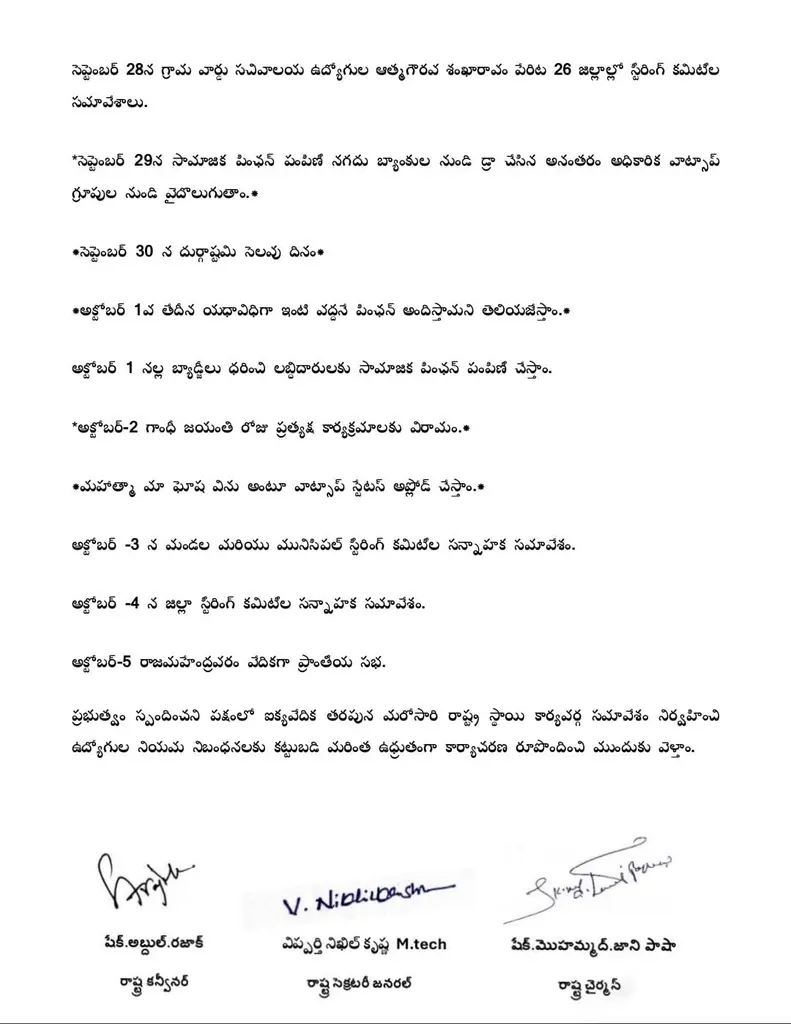 సెప్టెంబర్ 28న గ్రామ వార్డు సచివాలయ ఉద్యోగుల ఆత్మగౌరవ శంఖారావం పేరిట 26 జిల్లాల్లో స్టీరింగ్ కమిటీల
సమావేశాలు.
*సెప్టెంబర్ 29న సామాజిక పింఛన్ పంపిణీ నగదు బ్యాంకుల నుండి డ్రా చేసిన అనంతరం అధికారిక వాట్సాప్
గ్రూపుల నుండి వైదొలుగుతాం.*
*సెప్టెంబర్ 30 న దుర్గాష్టమి సెలవు దినం*
*అక్టోబర్ 1వ తేదీన యధావిధిగా ఇంటి వద్దనే పింఛన్ అందిస్తామని తెలియజేస్తాం.*
అక్టోబర్ 1 నల్ల బ్యాడ్జీలు ధరించి లబ్ధిదారులకు సామాజిక పింఛన్ పంపిణీ చేస్తాం.
*అక్టోబర్-2 గాంధీ జయంతి రోజు ప్రత్యక్ష కార్యక్రమాలకు విరామం.*
*మహాత్మా మా ఘోష విను అంటూ వాట్సాప్ స్టేటస్ అప్లోడ్ చేస్తాం.*
అక్టోబర్ -3 న మండల మరియు మునిసిపల్ స్టీరింగ్ కమిటీల సన్నాహక సమావేశం.
అక్టోబర్ -4 న జిల్లా స్టీరింగ్ కమిటీల సన్నాహక సమావేశం.
అక్టోబర్-5 రాజమహేంద్రవరం వేదికగా ప్రాంతీయ సభ.
ప్రభుత్వం స్పందించని పక్షంలో ఐక్యవేదిక తరపున మరోసారి రాష్ట్ర స్థాయి కార్యవర్గ సమావేశం నిర్వహించి
ఉద్యోగుల నియమ నిబంధనలకు కట్టుబడి మరింత ఉధ్రుతంగా కార్యాచరణ రూపొందించి ముందుకు వెళ్తాం.
షేక్.అబ్దుల్.రజాక్ విప్పర్తి నిఖిల్ కృష్ణ M.tech షేక్.మొహమ్మద్.జాని పాషా
రాష్ట్ర కన్వీనర్ రాష్ట్ర సెక్రటరీ జనరల్ రాష్ట్ర చైర్మన్